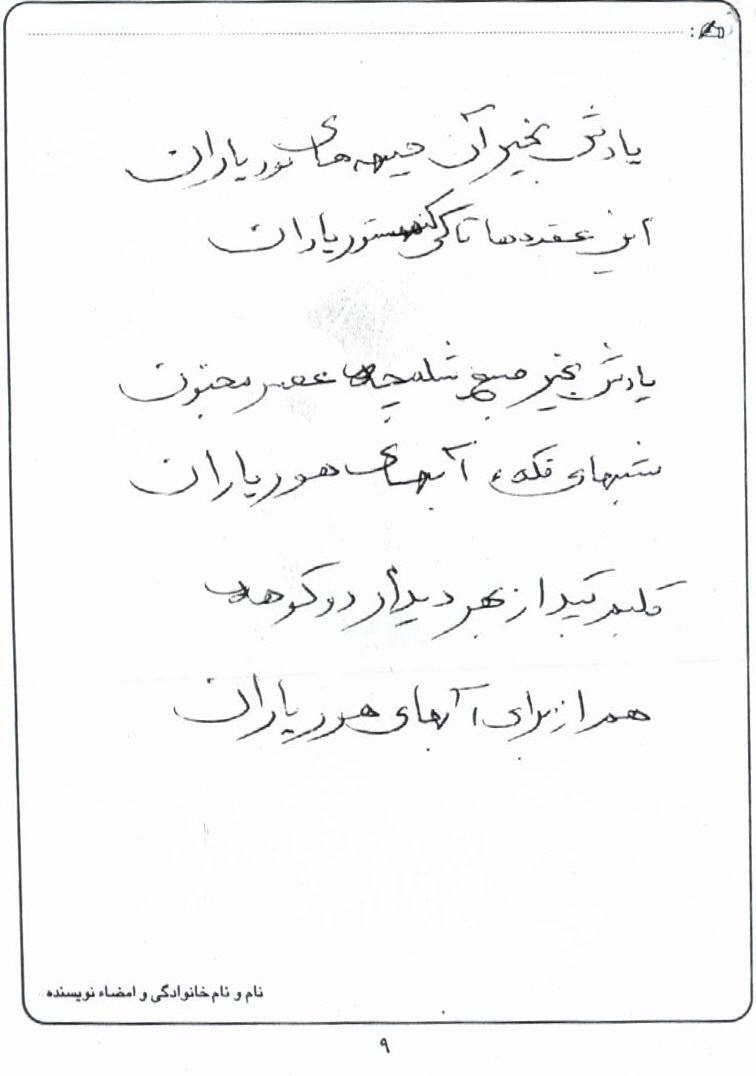 یادش بخیر آن جبهه های نور یاران
این عقده ها تا کی مستور یاران
یادش بخیر صبح شلمچه عصر مجنون
شبهای فکه، آبهای هور یاران
قلبم تپد از بهر دیدار دوکوهه
هم از برای آبهای هور یاران
نام و نام خانوادگی و امضاء نویسنده
۹